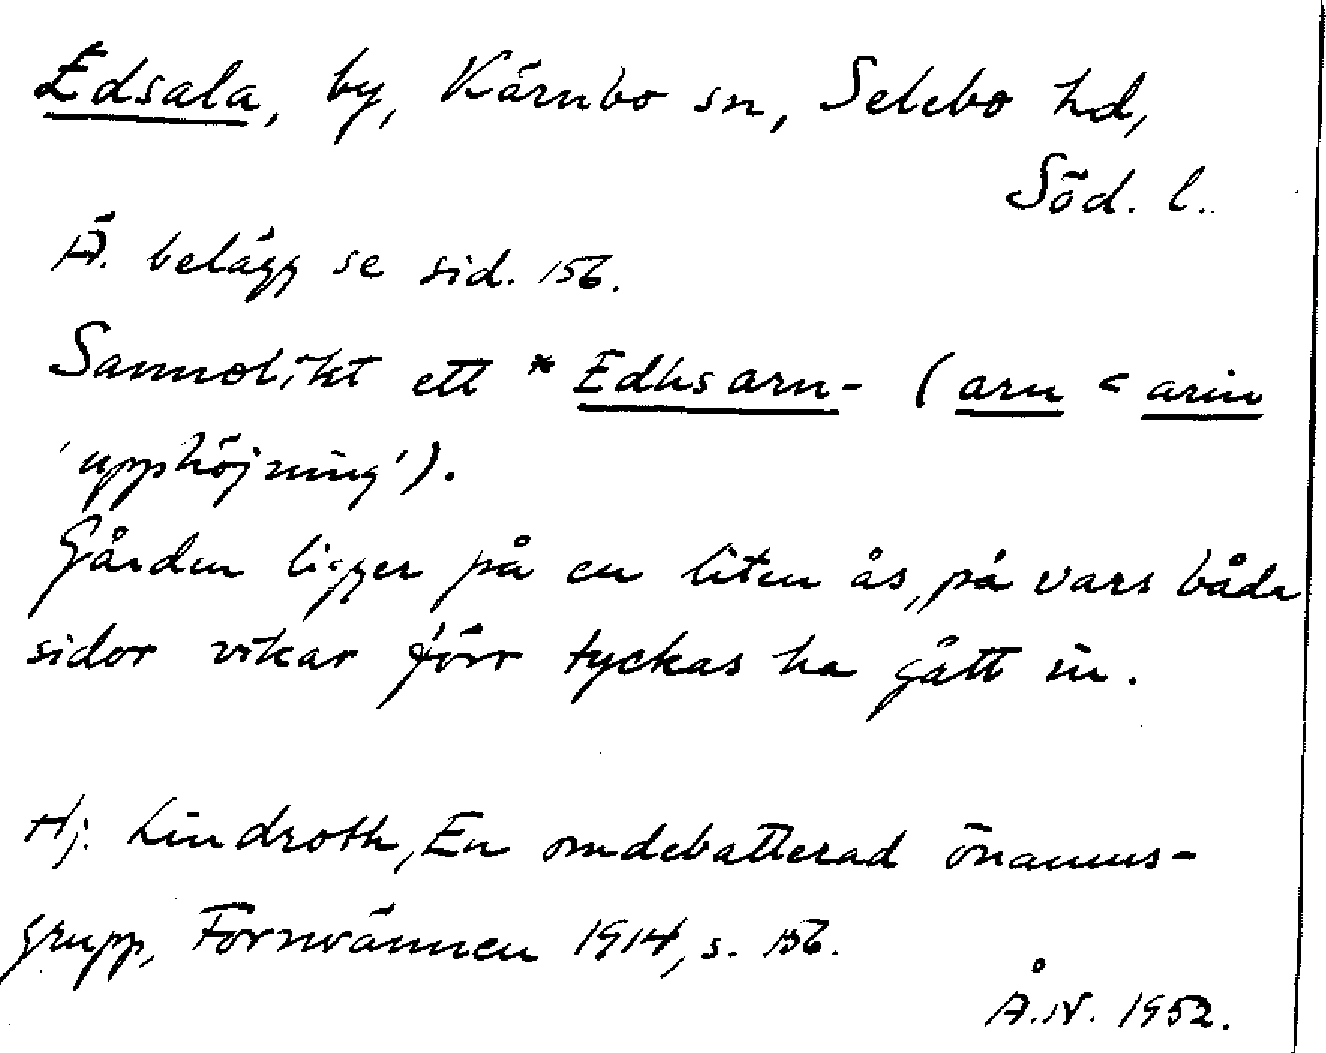 Edsala, by, Kärnbo sn, Selebo hd,
Söd. l.
Ä. belägg se sid. 156.
Sannolikt ett *Edhsarn- (arn < arin
'upphöjning').
Gården ligger på en liten ås, på vars båda
sidor vikar förr tyckas ha gått in.
Hj. Lindroth, En omdebatterad önamns-
grupp, Fornvännen 1914, s. 156.
Å.N. 1952.